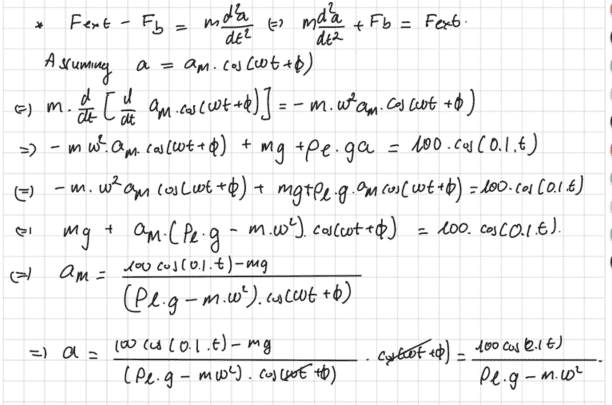 * Fext - Fb = m d²a/dt² ⇔ m d²a/dt² + Fb = Fext.
Assuming a = aM . cos(ωt+ϕ)
⇔ m. d/dt [ d/dt aM. cos(ωt+ϕ) ] = - m. ω² aM. cos(ωt +ϕ)
⇒ - m ω². aM. cos(ωt+ϕ) + mg + ρe. ga = 100. cos(0.1.t)
⇔ - m. ω² aM cos(ωt+ϕ) + mg+ρe.g. aM cos(ωt+ϕ) = 100. cos(0.1.t)
⇔ mg + aM. (ρe. g - m. ω²). cos(ωt+ϕ) = 100. cos(0.1.t).
⇔ aM = 100 cos(0.1.t) - mg / (ρe.g - m.ω²). cos(ωt+ϕ)
⇒ a = 100 cos(0.1.t) - mg / (ρe.g - mω²). cos(ωt+ϕ) . cos(ωt+ϕ) = 100 cos(0.1t) / ρe.g - m.ω².